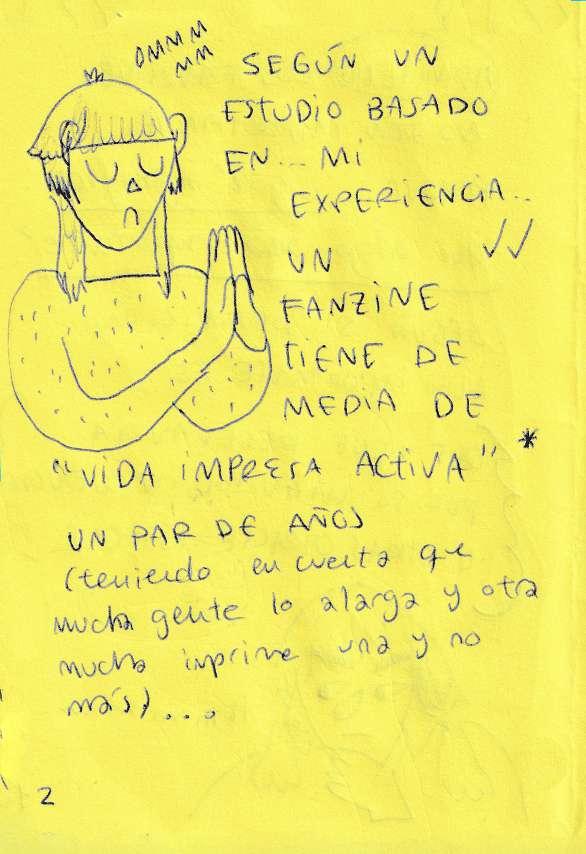 OMMM
MM
SEGÚN UN
ESTUDIO BASADO
EN... MI
EXPERIENCIA..
UN
FANZINE
TIENE DE
MEDIA DE
"VIDA IMPRESA ACTIVA" *
UN PAR DE AÑOS
(teniendo en cuenta que
mucha gente lo alarga y otra
mucha imprime una y no
más)...
2